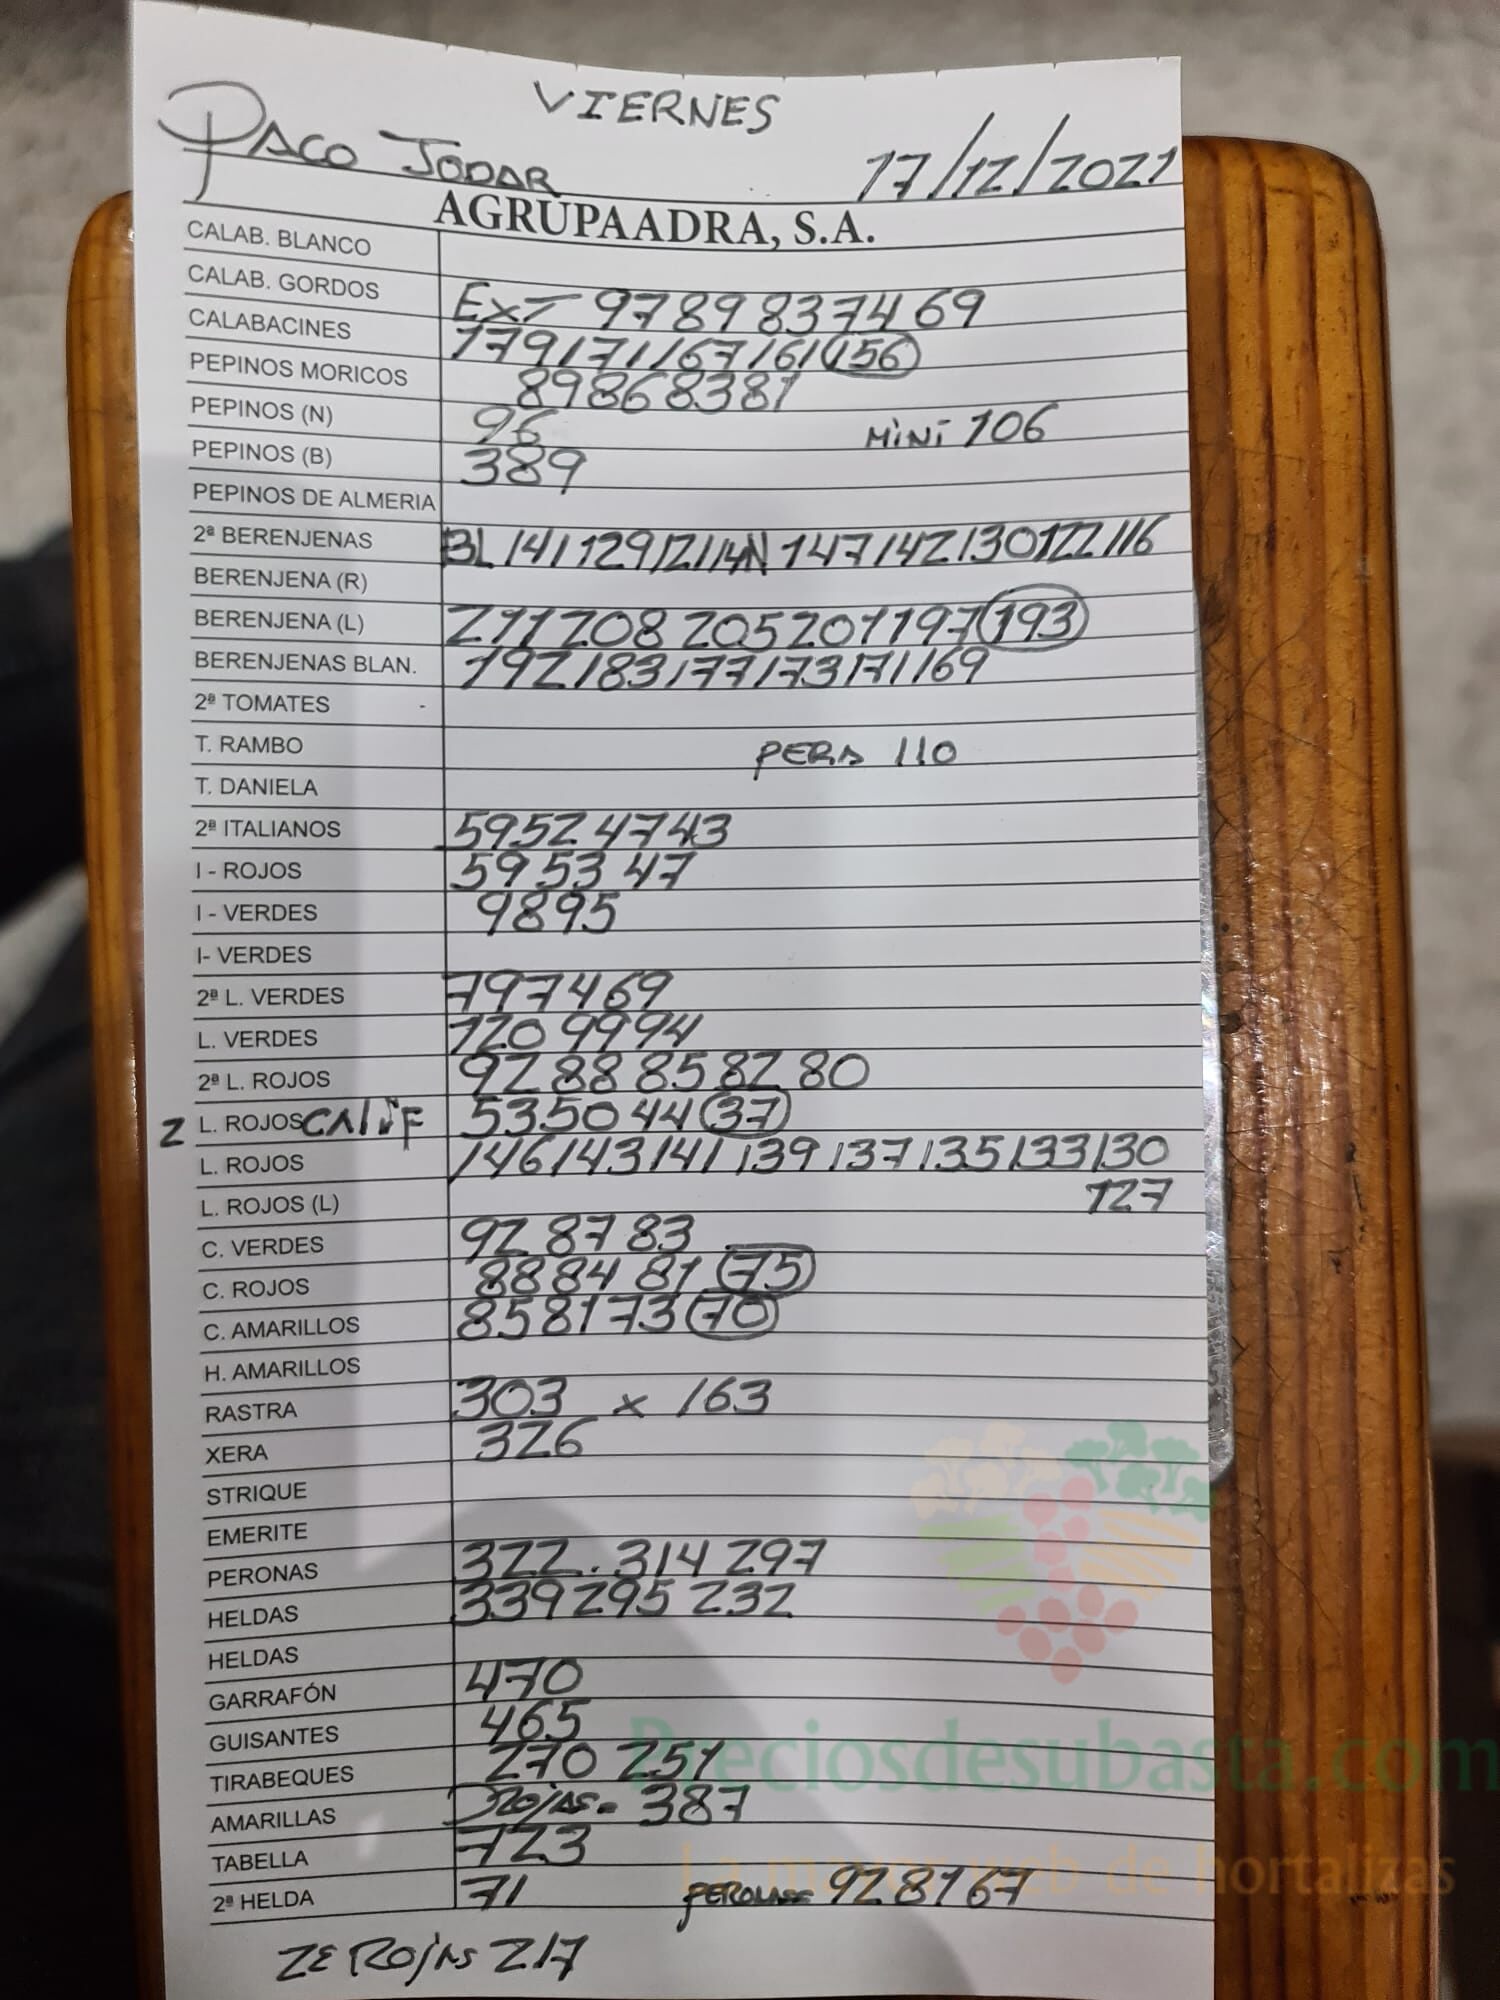 VIERNES
PACO JODAR 17/12/2021
AGRUPAADRA, S.A.
CALAB. BLANCO
CALAB. GORDOS EXT 97 89 83 74 69
CALABACINES 179 171 167 161 156
PEPINOS MORICOS 89 86 83 81
PEPINOS (N) 96 MINI 106
PEPINOS (B) 389
PEPINOS DE ALMERIA
2ª BERENJENAS BL 141 129 121 114 N 147 142 130 122 116
BERENJENA (R)
BERENJENA (L) 211 208 205 201 197 193
BERENJENAS BLAN. 192 183 177 173 171 169
2ª TOMATES
T. RAMBO PERA 110
T. DANIELA
2ª ITALIANOS 59 52 47 43
I - ROJOS 59 53 47
I - VERDES 98 95
I- VERDES
2ª L. VERDES 79 74 69
L. VERDES 120 99 94
2ª L. ROJOS 92 88 85 82 80
2 L. ROJOS CALIF 53 50 44 37
L. ROJOS 146 143 141 139 137 135 133 130
L. ROJOS (L) 127
C. VERDES 92 87 83
C. ROJOS 88 84 81 75
C. AMARILLOS 85 81 73 70
H. AMARILLOS
RASTRA 303 x 163
XERA 326
STRIQUE
EMERITE
PERONAS 322. 314 297
HELDAS 339 295 232
HELDAS
GARRAFÓN 470
GUISANTES 465
TIRABEQUES 270 251
AMARILLAS ROJAS = 387
TABELLA 723
2ª HELDA 71 PERONAS = 92 81 67
2E ROJAS 217
Preciosdesubasta.com
La mayor web de hortalizas